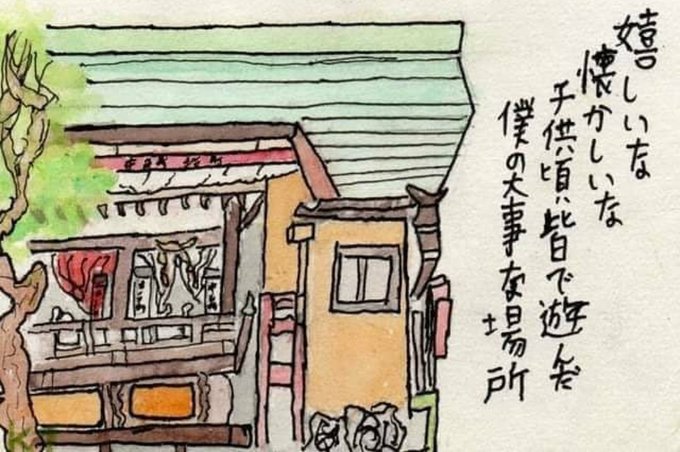 嬉しいな
懐かしいな
子供頃皆で遊んだ
僕の大事な場所